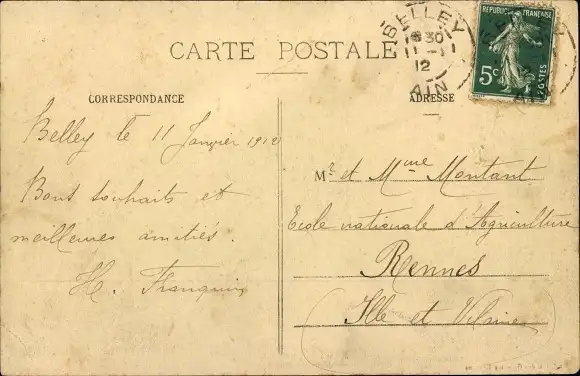 CARTE POSTALE
BELLEY
30
11 - 1
12
AIN
RÉPUBLIQUE FRANÇAISE
5c
POSTES
CORRESPONDANCE
ADRESSE
Belley le 11 Janvier 1912
Bons souhaits et
meilleures amitiés.
H. Franquin
Mr et Mme Montant
Ecole nationale d'Agriculture
Rennes
Ille et Vilaine